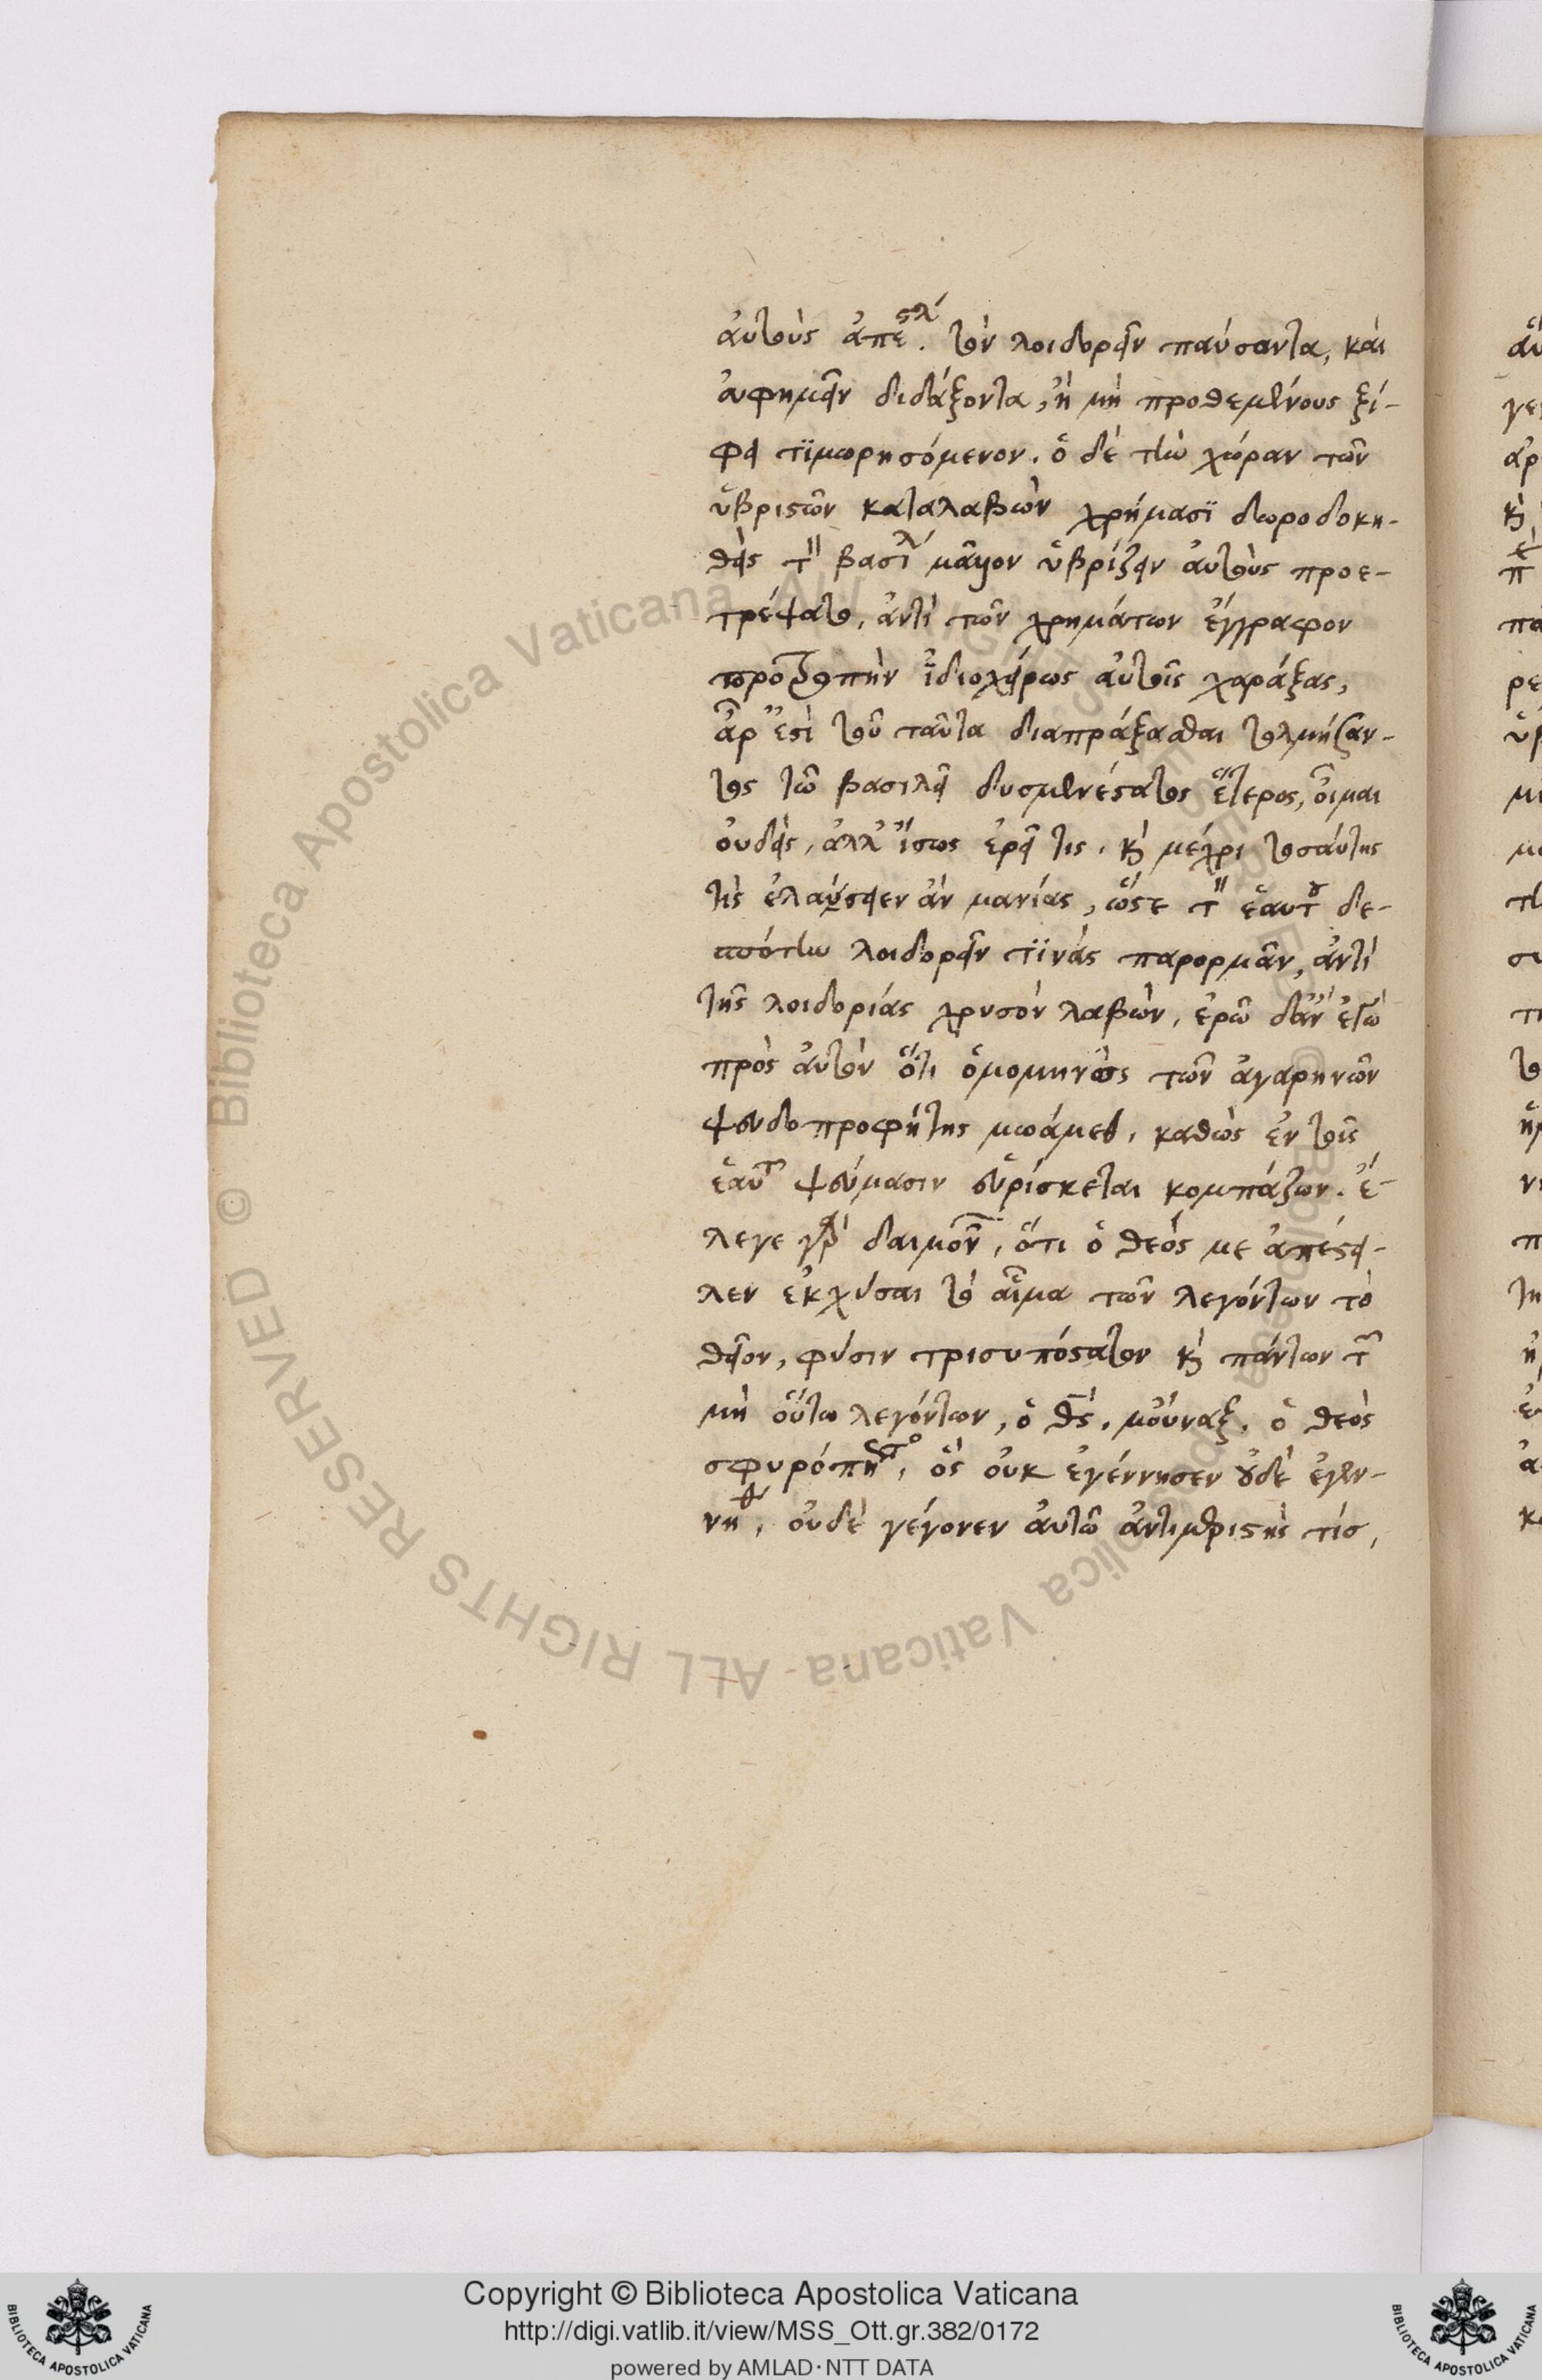 αὐτοὺς ἀπέστλ. τὸν λοιδορεῖν παύσαντα, καὶ
εὐφημεῖν διδάξοντα, ἢ μὴ προθεμένους ξί-
φει τϊμωρησόμενον. ὁ δὲ τὴν χώραν τῶν
ὑβριστῶν καταλαβὼν χρήμασϊ δωροδοκη-
θεὶς τὸν βασιλ μᾶλλον ὑβρίζειν αὐτοὺς προε-
τρέψατο, ἀντὶ τῶν χρημάτων ἔγγραφον
προτροπὴν ἰδιοχείρως αὐτοῖς χαράξας,
ἆρ ἐστὶ τοῦ ταῦτα διαπράξασθαι τολμήσαν-
τος τῶ βασιλεῖ δυσμενέστατος ἕτερος, οἶμαι
οὐδεὶς, ἀλλ' ἴσως ἐρεῖ τις. κὴ μέχρι τοσαύτης
τίς ἐλαύσειεν ἂν μανίας, ὥστε τὸν ἑαυτοῦ δε-
σπότην λοιδορεῖν τϊνὰς παρορμᾶν, ἀντὶ
τῆς λοιδορίας χρυσὸν λαβὼν, ἐρῶ δ' ἂν ἐγὼ
πρὸς αὐτὸν ὅτι ὁ τῶν ἀγαρηνῶν
ψευδοπροφήτης μωάμεδ, καθὼς ἐν τοῖς
ἑαυτ ψεύμασιν εὑρίσκεται κομπάζων. ἔ-
λεγε γὰρ δαιμον, ὅτι ὁ θεός με ἀπέστει-
λεν ἐκχύσαι τὸ αἷμα τῶν λεγόντων τὸ
θεῖον, φύσιν τρισυπόστατον κὴ πάντων τῶν
μὴ οὕτω λεγόντων, ὁ θς. μούναξ. ὁ θεὸς
σφυρόπηκτο, ὃς οὐκ ἐγέννησεν οὐδὲ ἐγεν-
νήθ, οὐδὲ γέγονεν αὐτῶ ἀντιμεριστής τίσ,
Copyright © Biblioteca Apostolica Vaticana
http://digi.vatlib.it/view/MSS_Ott.gr.382/0172
powered by AMLAD·NTT DATA